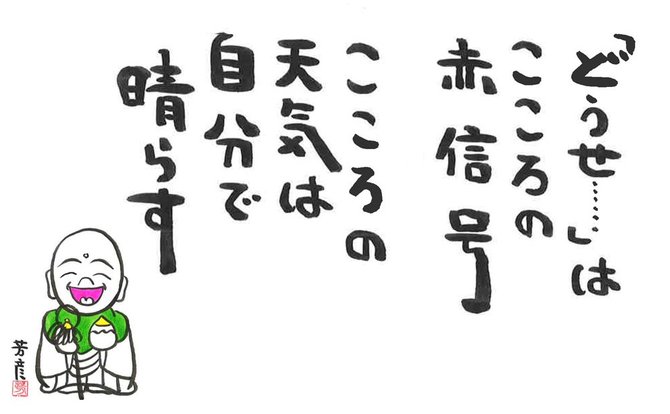 「どうせ……」は
こころの
赤信号
こころの
天気は
自分で
晴らす
芳彦